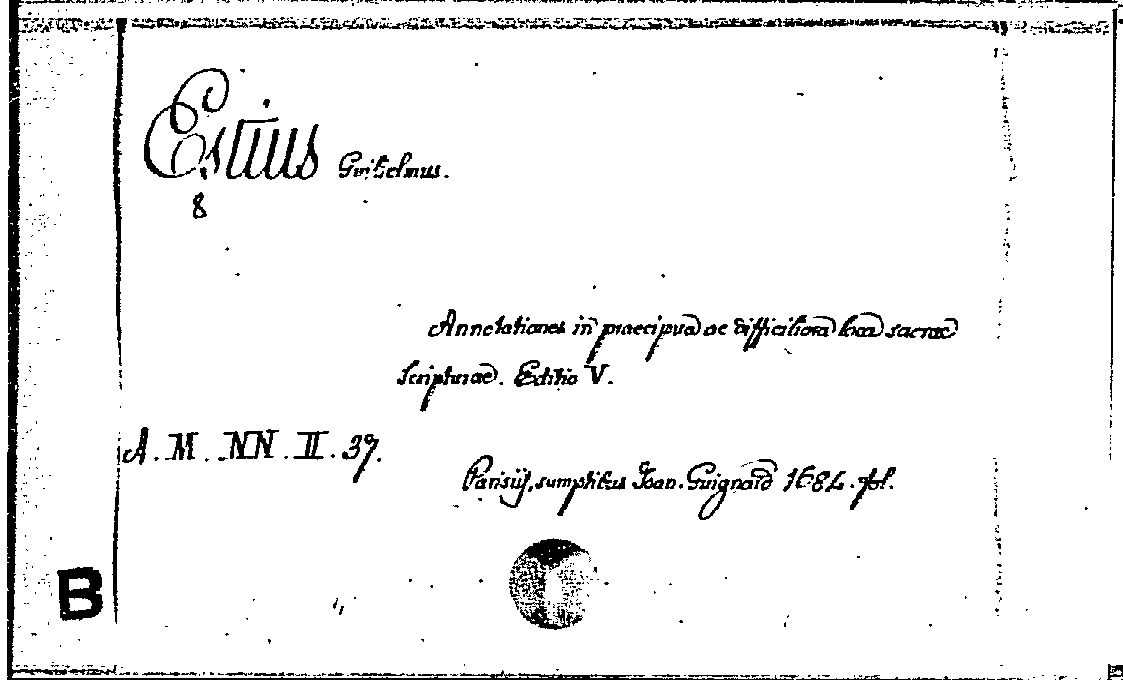 Estius Guilielmus.
8
Annotationes in praecipua ac difficiliora loca sacrae
scripturae. Editio V.
A. M. NN. II. 37.
Parisiis, sumptibus Joan. Guignard 1684. fol.
B